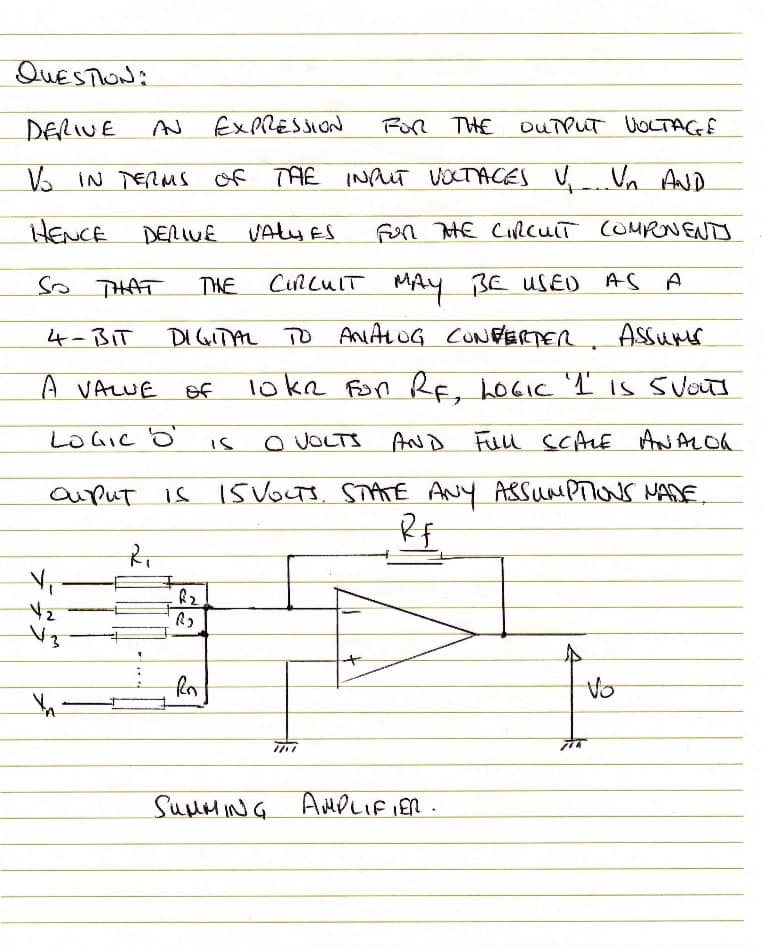 QUESTION:
DERIVE AN EXPRESSION FOR THE OUTPUT VOLTAGE
Vo IN TERMS OF THE INPUT VOLTAGES V1...Vn AND
HENCE DERIVE VALUES FOR THE CIRCUIT COMPONENTS
SO THAT THE CIRCUIT MAY BE USED AS A
4-BIT DIGITAL TO ANALOG CONVERTER. ASSUME
A VALUE OF 10kΩ FOR RF, LOGIC '1' IS 5 VOLTS
LOGIC 'O' IS O VOLTS AND FULL SCALE ANALOG
OUTPUT IS 15 VOLTS. STATE ANY ASSUMPTIONS MADE.
Rf
R1
V1
R2
V2
R3
V3
Rn
Vn
-
+
Vo
SUMMING AMPLIFIER.